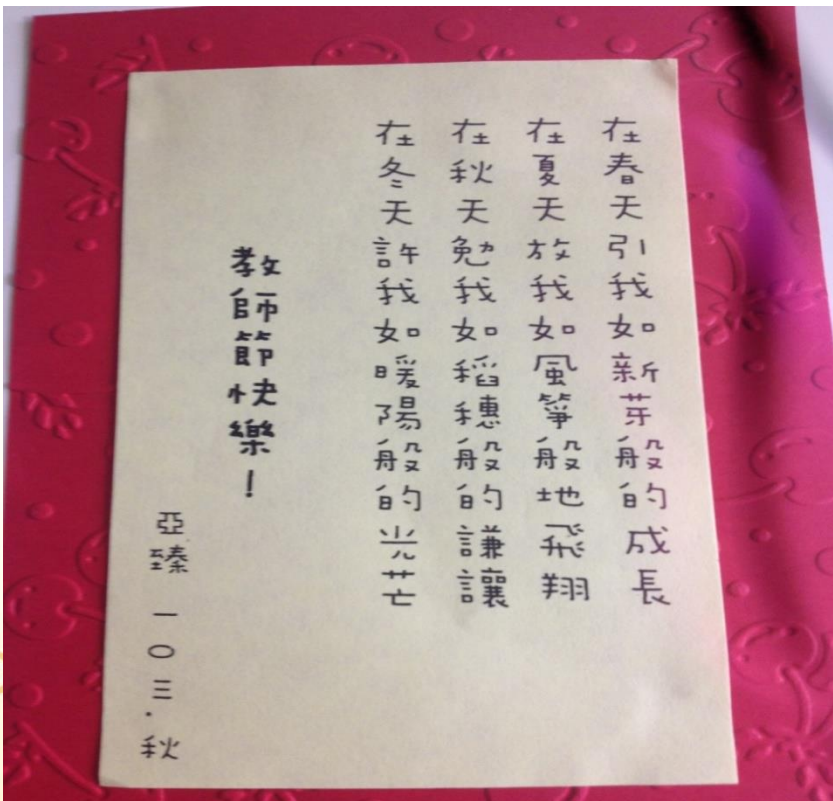 在春天引我如新芽般的成長
在夏天放我如風箏般地飛翔
在秋天勉我如稻穗般的謙讓
在冬天許我如暖陽般的光芒
教師節快樂！
亞臻 一〇三．秋